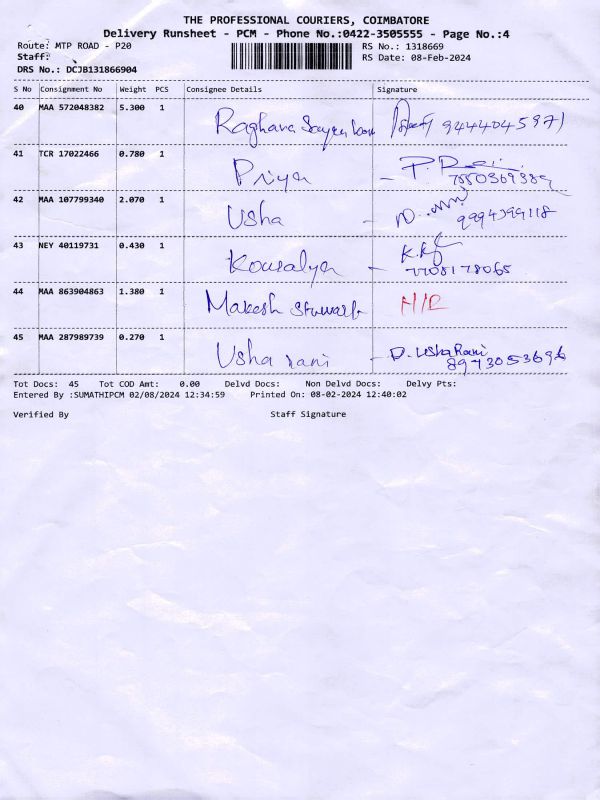 THE PROFESSIONAL COURIERS, COIMBATORE
Delivery Runsheet - PCM - Phone No.:0422-3505555 - Page No.:4
Route: MTP ROAD - P20 RS No.: 1318669
Staff: RS Date: 08-Feb-2024
DRS No.: DCJB131866904
S No Consignment No Weight PCS Consignee Details Signature
40 MAA 572048382 5.300 1 Raghava
41 TCR 17022466 0.780 1 Priya
42 MAA 107799340 2.070 1 Usha
43 NEY 40119731 0.430 1 Kousalya
7708178065
44 MAA 863904863 1.380 1 Makesh
45 MAA 287989739 0.270 1 Usha rani - D. Usha Rani
Tot Docs: 45 Tot COD Amt: 0.00 Delvd Docs: Non Delvd Docs: Delvy Pts:
Entered By :SUMATHIPCM 02/08/2024 12:34:59 Printed On: 08-02-2024 12:40:02
Verified By Staff Signature